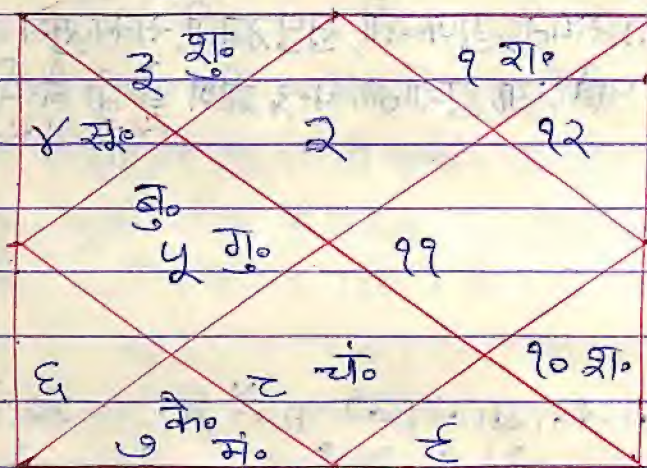 ३ शु० १ रा०
४ सू० २ १२
बु०
५ गु० ११
६ ८ चं० १० श०
७ के० ९
मं०